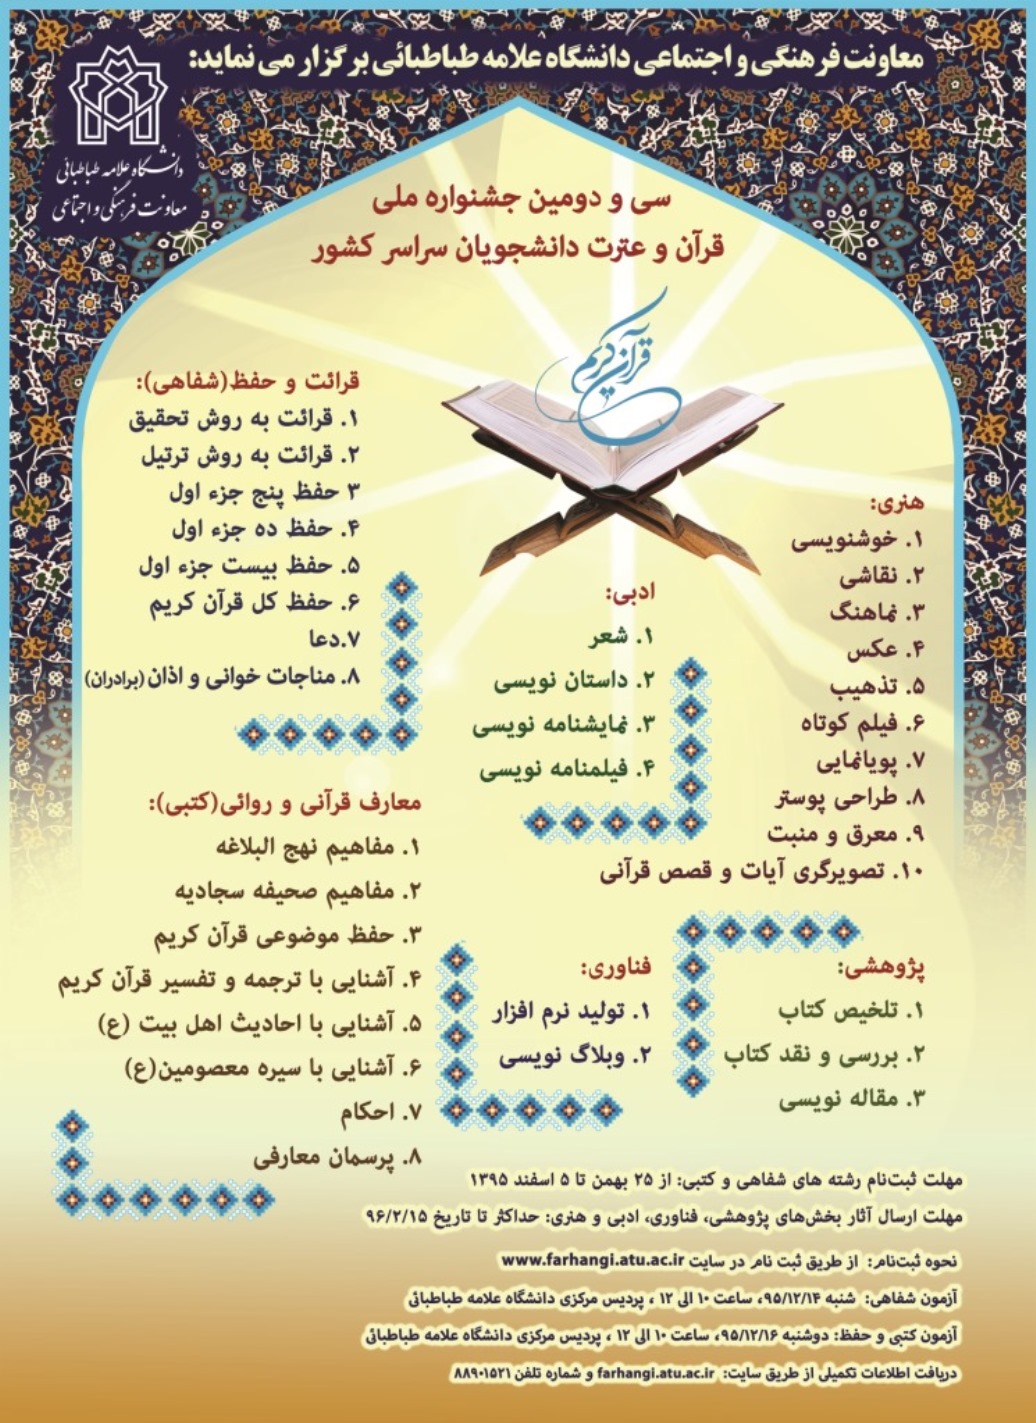 معاونت فرهنگی و اجتماعی دانشگاه علامه طباطبائی برگزار می نماید:
دانشگاه علامه طباطبائی
معاونت فرهنگی و اجتماعی
سی و دومین جشنواره ملی
قرآن و عترت دانشجویان سراسر کشور
قرآن کریم
هنری:
۱. خوشنویسی
۲. نقاشی
۳. نماهنگ
۴. عکس
۵. تذهیب
۶. فیلم کوتاه
۷. پویانمایی
۸. طراحی پوستر
۹. معرق و منبت
۱۰. تصویرگری آیات و قصص قرآنی
ادبی:
۱. شعر
۲. داستان نویسی
۳. نمایشنامه نویسی
۴. فیلمنامه نویسی
قرائت و حفظ(شفاهی):
۱. قرائت به روش تحقیق
۲. قرائت به روش ترتیل
۳ حفظ پنج جزء اول
۴. حفظ ده جزء اول
۵. حفظ بیست جزء اول
۶. حفظ کل قرآن کریم
۷.دعا
۸. مناجات خوانی و اذان(برادران)
پژوهشی:
۱. تلخیص کتاب
۲. بررسی و نقد کتاب
۳. مقاله نویسی
فناوری:
۱. تولید نرم افزار
۲. وبلاگ نویسی
معارف قرآنی و روائی(کتبی):
۱. مفاهیم نهج البلاغه
۲. مفاهیم صحیفه سجادیه
۳. حفظ موضوعی قرآن کریم
۴. آشنایی با ترجمه و تفسیر قرآن کریم
۵. آشنایی با احادیث اهل بیت (ع)
۶. آشنایی با سیره معصومین(ع)
۷. احکام
۸. پرسمان معارفی
مهلت ثبت‌نام رشته های شفاهی و کتبی: از ۲۵ بهمن تا ۵ اسفند ۱۳۹۵
مهلت ارسال آثار بخش‌های پژوهشی، فناوری، ادبی و هنری: حداکثر تا تاریخ ۹۶/۲/۱۵
نحوه ثبت‌نام: از طریق ثبت نام در سایت www.farhangi.atu.ac.ir
آزمون شفاهی: شنبه ۹۵/۱۲/۱۴، ساعت ۱۰ الی ۱۲ ، پردیس مرکزی دانشگاه علامه طباطبائی
آزمون کتبی و حفظ: دوشنبه ۹۵/۱۲/۱۶، ساعت ۱۰ الی ۱۲ ، پردیس مرکزی دانشگاه علامه طباطبائی
دریافت اطلاعات تکمیلی از طریق سایت: farhangi.atu.ac.ir و شماره تلفن ۸۸۹۰۱۵۲۱